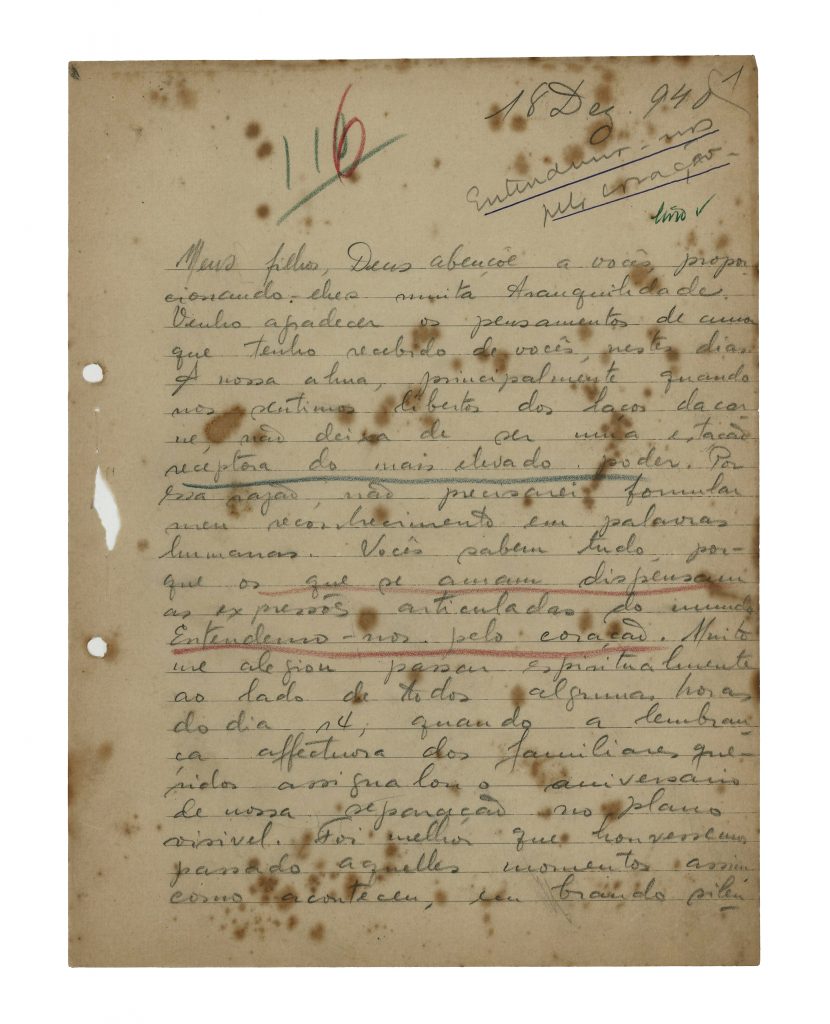 116
18 Dez. 940
1
Entendemo-nos
pelo coração
Meus filhos, Deus abençôe a vocês, propor
cionando-lhes muita tranquilidade.
Venho agradecer os pensamentos de amor
que tenho recebido de vocês, nestes dias.
A nossa alma, principalmente quando
nos sentimos libertos dos laços da car
ne, não deixa de ser uma estação
receptora do mais elevado poder. Por
essa razão, não precisarei formular
meu reconhecimento em palavras
humanas. Vocês sabem tudo, por-
que os que se amam dispensam
as expressões articuladas do mundo
Entendemo-nos pelo coração. Muito
me alegrou passar espiritualmente
ao lado de todos algumas horas
do dia 14, quando a lembran
ça affectuosa dos familiares que-
ridos assignalou o aniversario
de nossa separação no plano
visivel. Foi melhor que houvessemos
passado aquelles momentos assim
como aconteceu, em brando silên